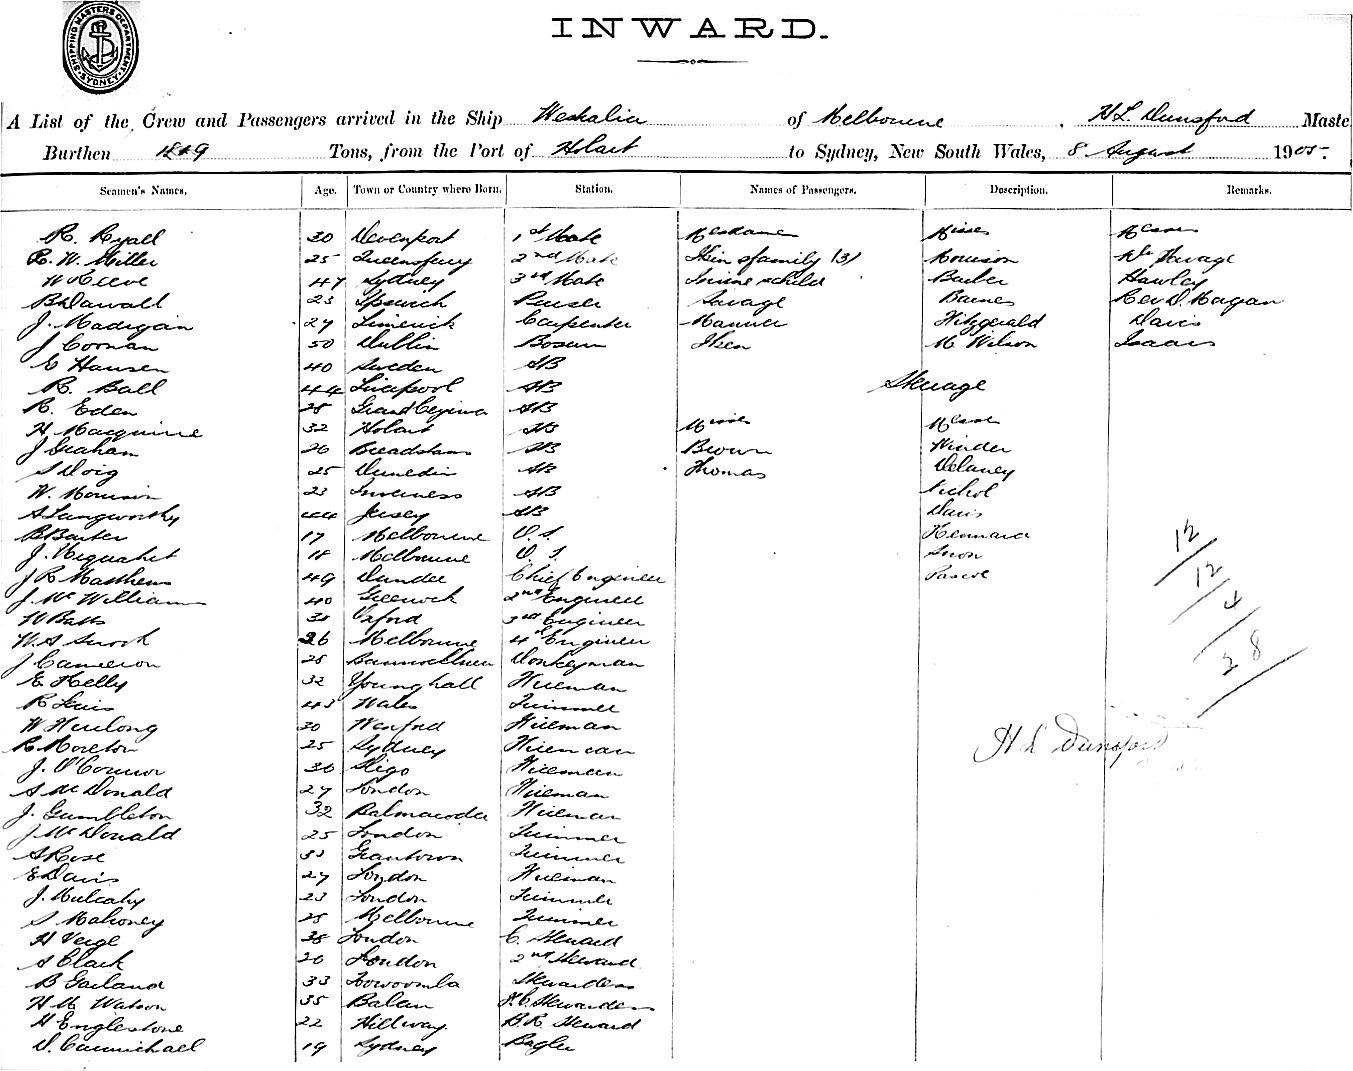 SHIPPING MASTERS DEPARTMENT SYDNEY
INWARD.
A List of the Crew and Passengers arrived in the Ship Westralia of Melbourne, H L Dunsford Maste
Burthen 1819 Tons, from the Port of Hobart to Sydney, New South Wales, 8 August 1905.
Seamen's Names. Age. Town or Country where Born. Station. Names of Passengers. Description. Remarks.
R. Ryall 30 Devenport 1st Mate Mesdames Misses Messrs
R. W. Miller 25 Queensferry 2nd Mate family (3) Morrison Savage
W Reeve 47 Sydney 3rd Mate Barber Hawley
23 Ipswich Purser Savage Barnes Rev D. Hagan
J. Madigan 27 Limerick Carpenter Manner Fitzgerald Davis
J Coonan 50 Dublin Bosun Iken M Wilson Isaacs
E Hansen 40 Sweden AB
R. Ball 44 Liverpool AB Steerage
R. Eden 28 AB
H Macquire 32 Hobart AB Misses Messrs
J Graham 26 AB Brown Winder
S Doig 25 Dunedin AB Thomas Delaney
W. Morrison 23 Inverness AB Nichol
A Langworthy 44 Jersey AB Davis
B Baxter 17 Melbourne O. S. Kennard
18 Melbourne O. S. Snow
J R Matthews 49 Dundee Chief Engineer Pascoe
J. McWilliams 40 Greenock 2nd Engineer
W Batts Oxford 3rd Engineer
W. A Snook 36 Melbourne 4th Engineer
J Cameron 28 Donkeyman
E Kelly 32 Younghall Fireman
R Lewis 43 Wales Trimmer
W Furlong 30 Wexford Fireman
R Moreton 25 Sydney Fireman
J. O'Connor 36 Sligo Fireman
S McDonald 27 London Fireman
J. Gumbleton 32 Fireman
J McDonald 25 London Trimmer
A Rose 33 Grantown Trimmer
E Davis 27 London Fireman
J. Mulcahy 23 London Trimmer
S Mahoney 28 Melbourne Trimmer
H Verge 38 London C. Steward
A Clark 26 London 2nd Steward
B Garland 33 Towoomba Stewardess
H M Watson 35 Stewardess
H Englestone 22 Hillway B. R. Steward
D. Carmichael 19 Sydney Bugler
12
12
4
28
H L Dunsford